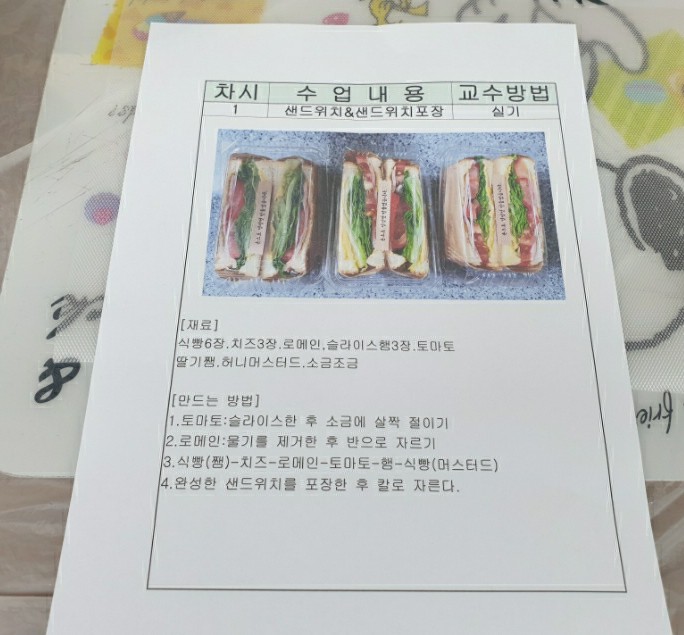 차시 수 업 내 용 교수방법
1 샌드위치&샌드위치포장 실기
[재료]
식빵6장.치즈3장.로메인,슬라이스햄3장.토마토
딸기쨈.허니머스터드.소금조금
[만드는 방법]
1.토마토:슬라이스한 후 소금에 살짝 절이기
2.로메인:물기를 제거한 후 반으로 자르기
3.식빵(쨈)-치즈-로메인-토마토-햄-식빵(머스터드)
4.완성한 샌드위치를 포장한 후 칼로 자른다.